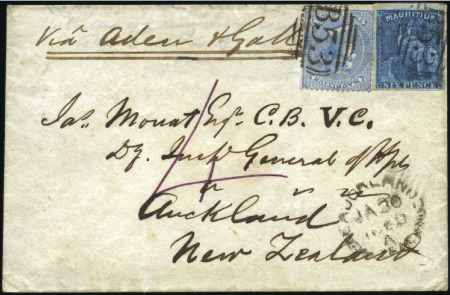 Via Aden & Galle
B53
MAURITIUS
SIX PENCE
Jas. Mouat Esqr. C.B. V.C.
Dy. Inspr General of Hpls
Auckland
New Zealand
AUCKLAND
JA 30